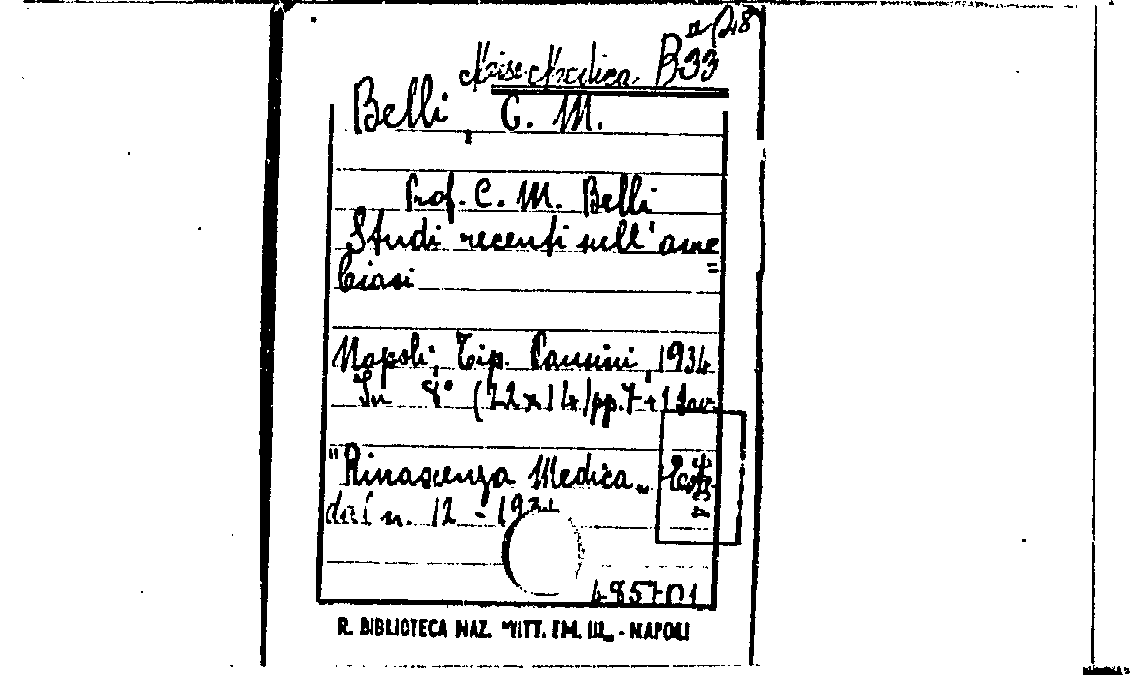 (28
Misc. Medica B33
Belli, C. M.
Prof. C. M. Belli
Studi recenti sull'ame
=
biasi
Napoli, Tip. Pansini, 1934
In 8° (22x14) pp. 7+1 tav.
"Rinascenza Medica„ Estr.
dal n. 12 - 1934
485701
R. BIBLIOTECA NAZ. "VITT. EM. III„ - NAPOLI